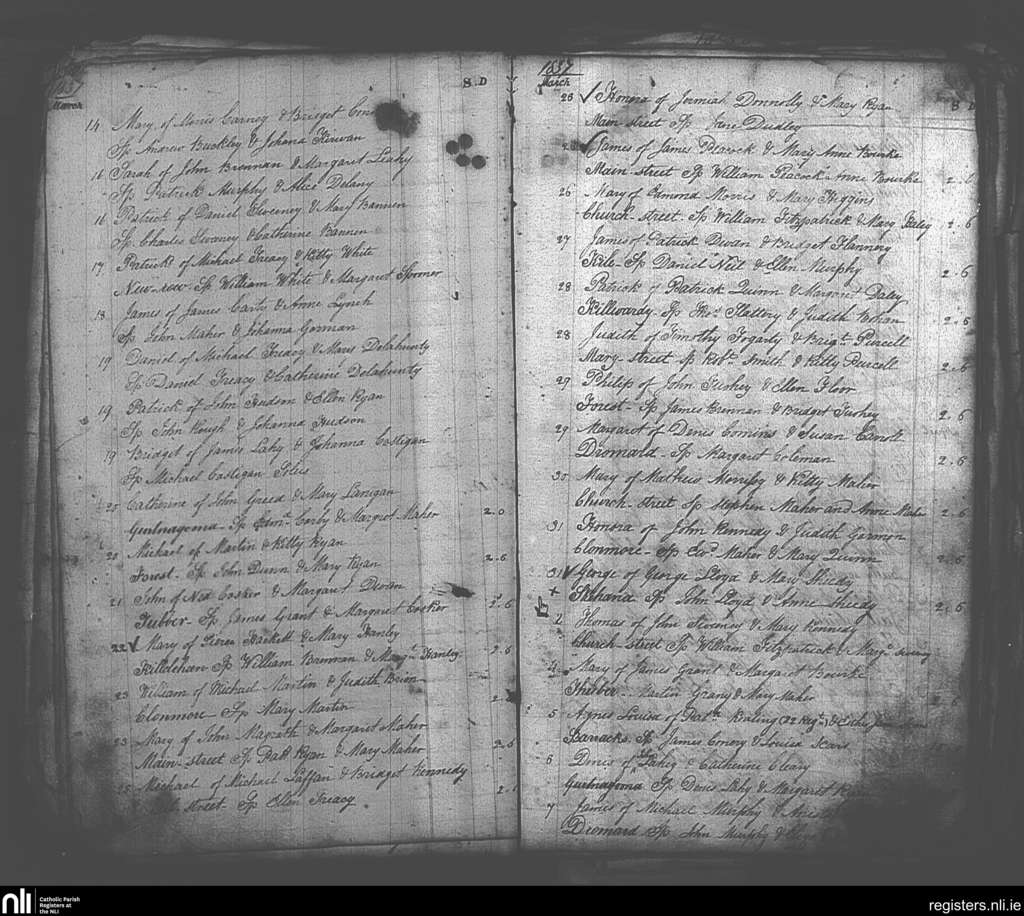 1837
March
S. D
14 Mary of Morris Carney & Bridget
Sp Andrew Buckley & Johena Kirwan
16 Sarah of John Brennan & Margaret Leahy
Sp Patrick Murphy & Alice Delany
16 Patrick of Daniel Sweeney & Mary Bannen
Sp Charles Sweeney & Catherine Bannen
17 Patrick of Michael Treacy & Kitty White
New-row Sp William White & Margaret Spooner
18 James of James Carty & Anne Lynch
Sp John Maher & Johanna Gorman
19 Daniel of Michael Treacy & Mary Delahunty
Sp Daniel Treacy & Catherine Delahunty
19 Patrick of John Hudson & Ellen Ryan
Sp John Keogh & Johanna Hudson
19 Bridget of James Lahy & Johanna Costigan
Sp Michael Costigan Solus
20 Catherine of John Greed & Mary Lanigan
Gurtnagoma Sp Edmd. Corby & Margret Maher 2.0
20 Michael of Martin & Kitty Ryan
Forest Sp John Dunn & Mary Ryan 2.6
21 John of Ned Cosker & Margaret Dwan
Tubber Sp James Grant & Margaret Cosker 2.6
22 Mary of Pierce Hackett & Mary Hanley
Killdehan Sp William Brennan & Margt. Hanley 2.6
23 William of Michael Martin & Judith Brien
Clonmore Sp Mary Martin 2.
23 Mary of John Magrath & Margaret Maher
Main-street Sp Patt Ryan & Mary Maher 2.6
25 Michael of Michael Laffan & Bridget Kennedy
street Sp Ellen Treacy 2.
1837
March
S D
25 Honora of Jermiah Donnolly & Mary Ryan
Main street Sp Jane Dudley
James of James Peacock & Mary Anne Bourke
Main street Sp William Peacock Anne Bourke 2.6
26 Mary of Edmond Morris & Mary Higgins
Church-street Sp William Fitzpatrick & Mary Daley 2.6
27 James of Patrick Dwan & Bridget Flannery
Kile Sp Daniel Neil & Ellen Murphy 2.6
28 Patrick of Patrick Quinn & Margaret Daley
Killwardy Sp Thos. Slattery & Judith Cohan 2.6
28 Judith of Timothy Fogarty & Bridgt. Purcell
Mary-street Sp Robt. Smith & Kitty Purcell 2.6
29 Philip of John Tushey & Ellen Floor
Forest Sp James Brennan & Bridget Tushey 2.6
29 Margaret of Denis Comins & Susan Carroll
Dromard Sp Margaret Coleman 2.6
30 Mary of Mathew Morrissy & Kitty Maher
Church street Sp Stephen Maher and Anne Maher 2.6
31 Honora of John Kennedy & Judith Gorman
Clonmore Sp Edwd. Maher & Mary Quinn 2.6
31 George of George Lloyd & Mary Sheedy
Sp John Lloyd & Anne Sheedy 2.6
2 Thomas of John Sweeney & Mary Kennedy
Church-street Sp William Fitzpatrick & Margt.
4 Mary of James Grant & Margaret Bourke
Thubber Martin Grany & Mary Maher 2.6
5 Agnes Louisa of (22 Regt.) & Esther
Barracks Sp James Conory & Louisa
6 Denis of Lahy & Catherine Cleary
Gurtnagoma Sp Denis Lahy & Margaret
7 James of Michael Murphy &
Dromard Sp John Murphy &
nli
Catholic Parish
Registers at
the NLI
registers.nli.ie